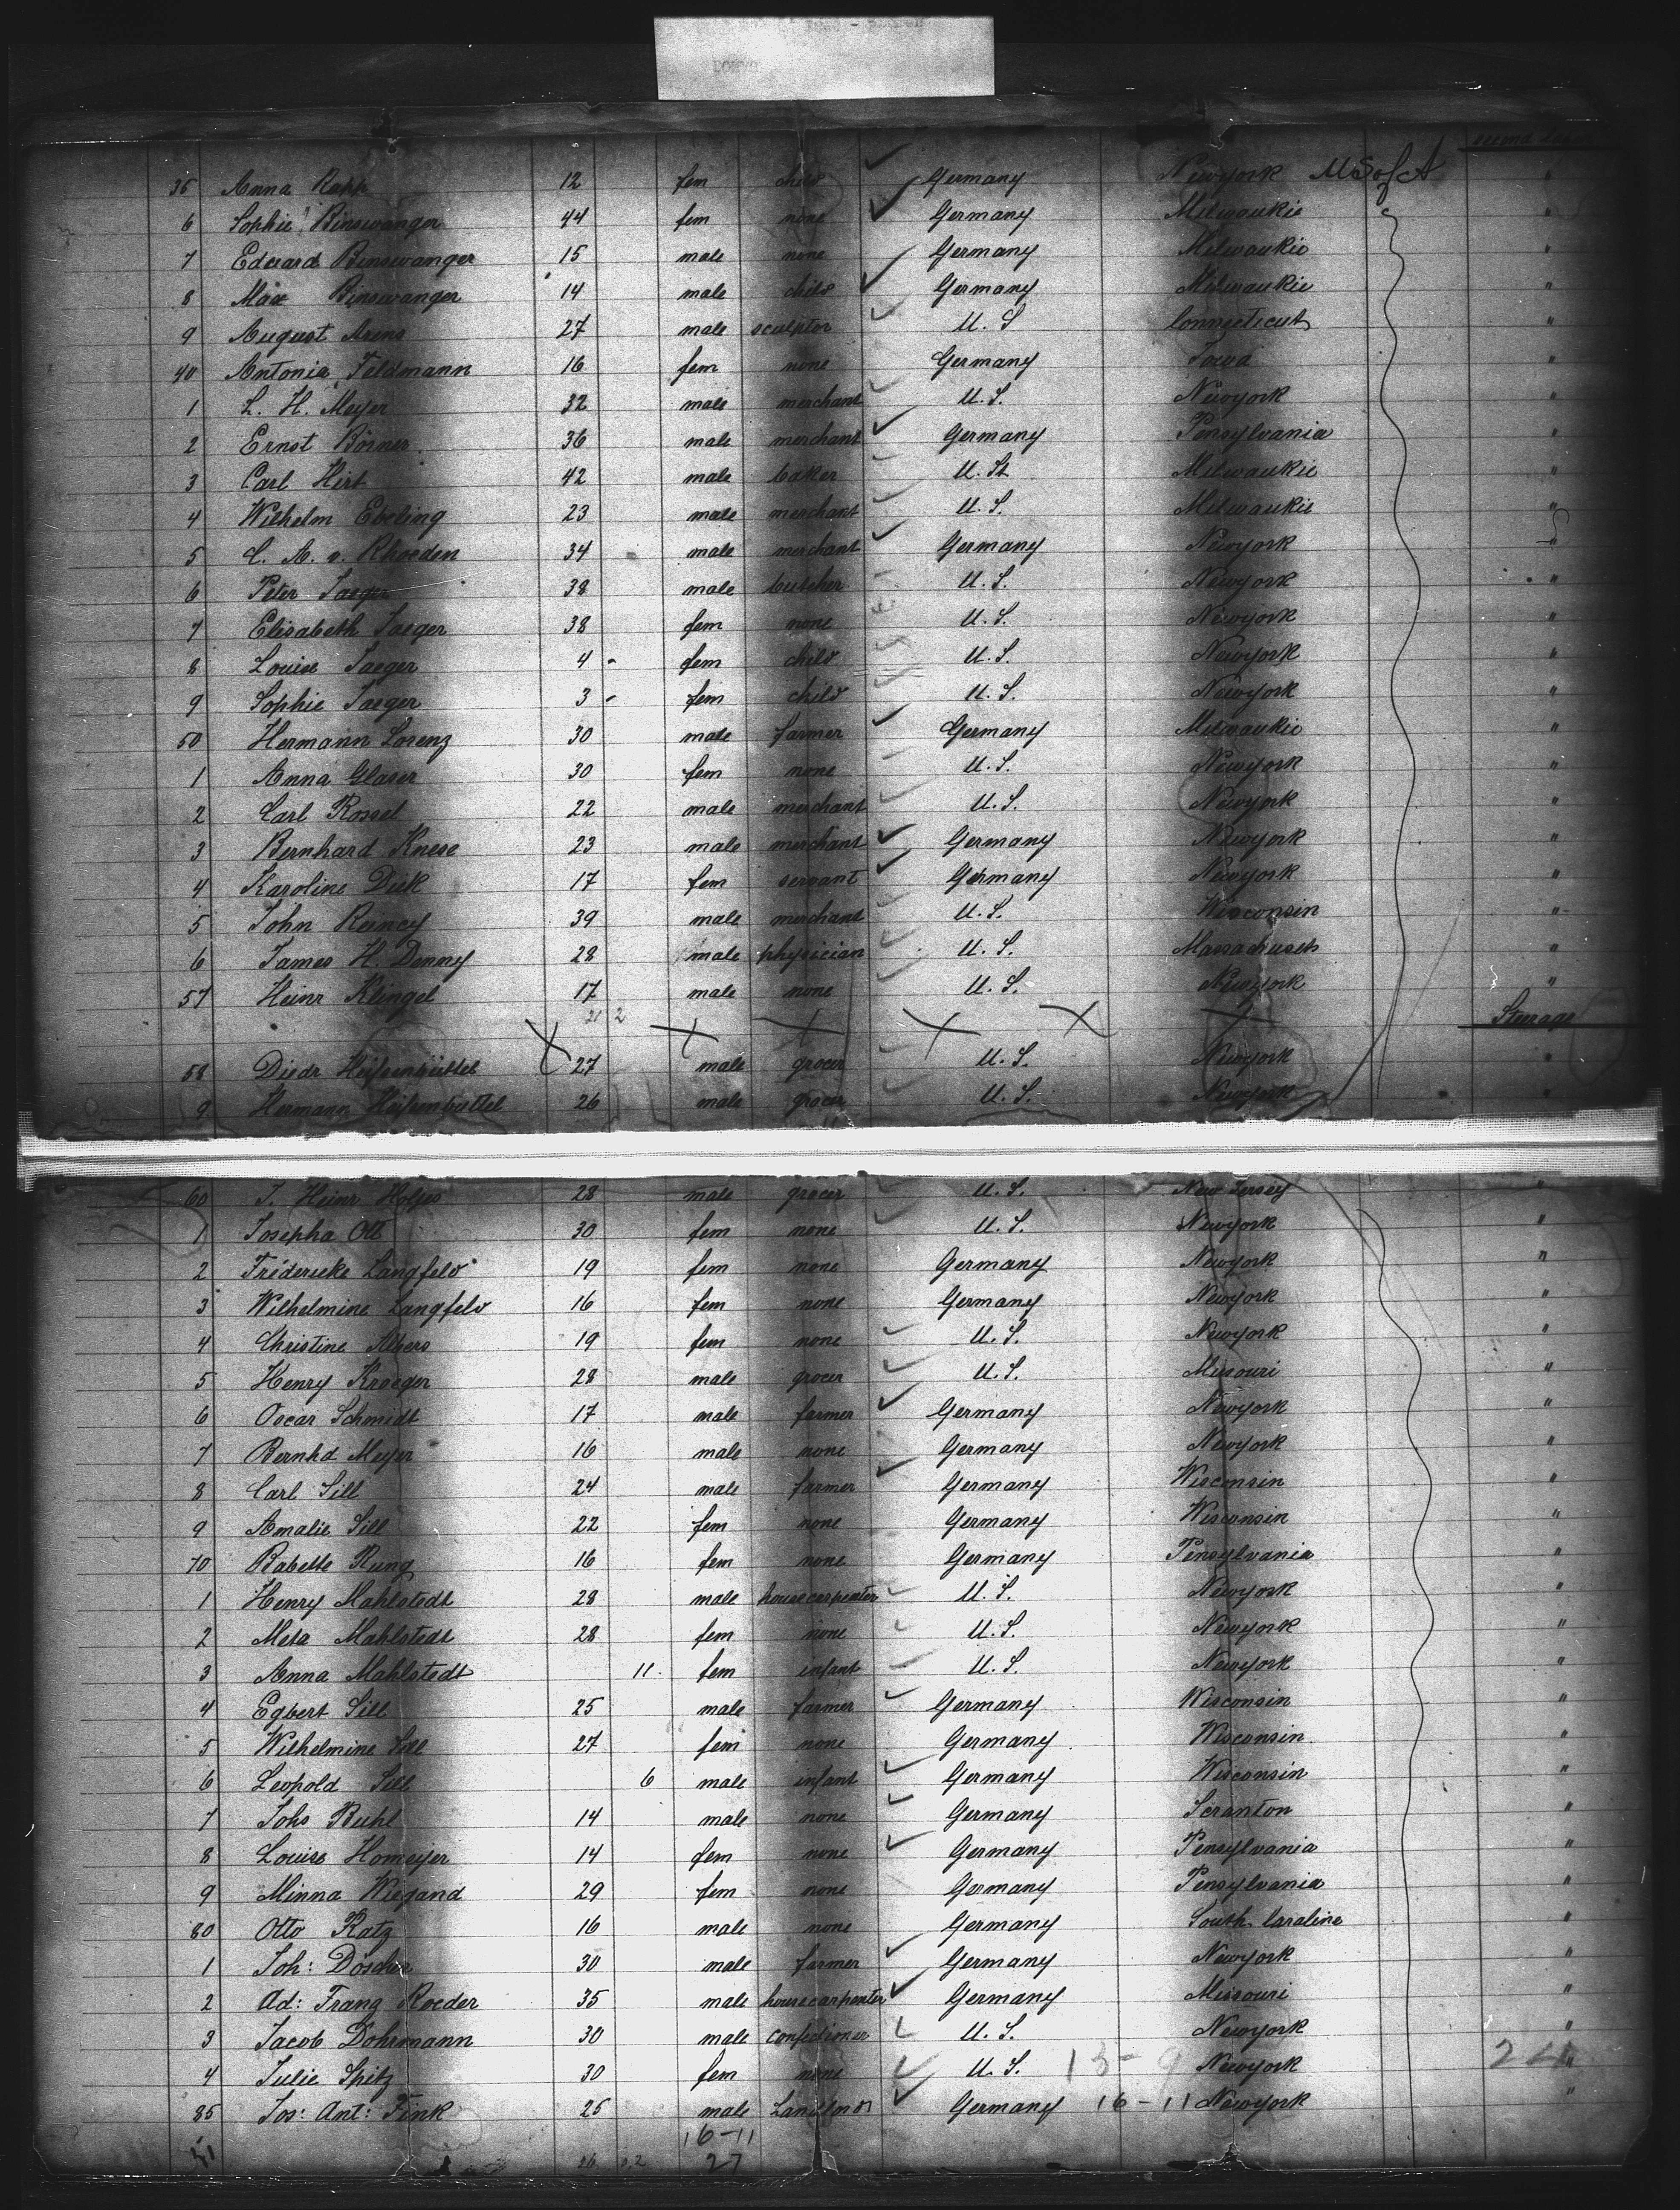 second
35 Anna Rapp 12 fem child Germany Newyork U S of A "
6 Sophie Binswanger 44 fem none Germany Milwaukie "
7 Eduard Binswanger 15 male none Germany Milwaukie "
8 Max Binswanger 14 male child Germany Milwaukie "
9 August Arens 27 male sculptor U. S Connecticut "
40 Antonia Feldmann 16 fem none Germany Iowa "
1 L. H. Meyer 32 male merchant U. S. Newyork "
2 Ernst Börner 36 male merchant Germany Pensylvania "
3 Carl Hirt 42 male baker U. St Milwaukie "
4 Wilhelm Ebeling 23 male merchant U. S. Milwaukie "
5 C. A. v. Rhoeden 34 male merchant Germany Newyork "
6 Peter Jaeger 38 male butcher U. S. Newyork "
7 Elisabeth Jaeger 38 fem none U. S. Newyork "
8 Louise Jaeger 4 - fem child U. S. Newyork "
9 Sophie Jaeger 3 - fem child U. S. Newyork "
50 Hermann Lorenz 30 male farmer Germany Milwaukie "
1 Anna Glaser 30 fem none U. S. Newyork "
2 Carl Rossel 22 male merchant U. S. Newyork "
3 Bernhard Knese 23 male merchant Germany Newyork "
4 Karoline Dick 17 fem servant Germany Newyork "
5 John Reincy 39 male merchant U. S. Wisconsin "
6 James H. Denny 28 male physician U. S. Massachusets "
57 Heinr Klingel 17 male none U. S. Newyork "
Steerage
58 Diedr Heissenbüttel 27 male grocer U. S. Newyork "
9 Hermann Heissenbuttel 26 male grocer U. S. Newyork "
60 J. Heinr Holjes 28 male grocer U. S. New Jersey "
1 Josepha Ott 30 fem none U. S. Newyork "
2 Fridericke Langfeld 19 fem none Germany Newyork "
3 Wilhelmine Langfeld 16 fem none Germany Newyork "
4 Christine Albers 19 fem none U. S. Newyork "
5 Henry Kroeger 28 male grocer U. S. Missouri "
6 Oscar Schmidt 17 male farmer Germany Newyork "
7 Bernhd Meyer 16 male none Germany Newyork "
8 Carl Sill 24 male farmer Germany Wisconsin "
9 Amalie Sill 22 fem none Germany Wisconsin "
70 Babette Rung 16 fem none Germany Pensylvania "
1 Henry Mahlstedt 28 male housecarpenter U. S. Newyork "
2 Meta Mahlstedt 28 fem none U. S. Newyork "
3 Anna Mahlstedt 11. fem infant U. S. Newyork "
4 Egbert Sill 25 male farmer Germany Wisconsin "
5 Wilhelmine Sill 27 fem none Germany Wisconsin "
6 Leopold Sill 6 male infant Germany Wisconsin "
7 Johs Buhl 14 male none Germany Scranton "
8 Louise Homeijer 14 fem none Germany Pensylvania "
9 Minna Wiegand 29 fem none Germany Pensylvania "
80 Otto Ratz 16 male none Germany South Caroline "
1 Joh: Döscher 30 male farmer Germany Newyork "
2 Ad: Franz Roeder 35 male housecarpenter Germany Missouri "
3 Jacob Dohrmann 30 male confectioner U. S. Newyork "
4 Julie Spitz 30 fem none U. S. 13-9 Newyork "
85 Jos: Ant: Fink 25 male Germany 16-11 Newyork "
16-11
27